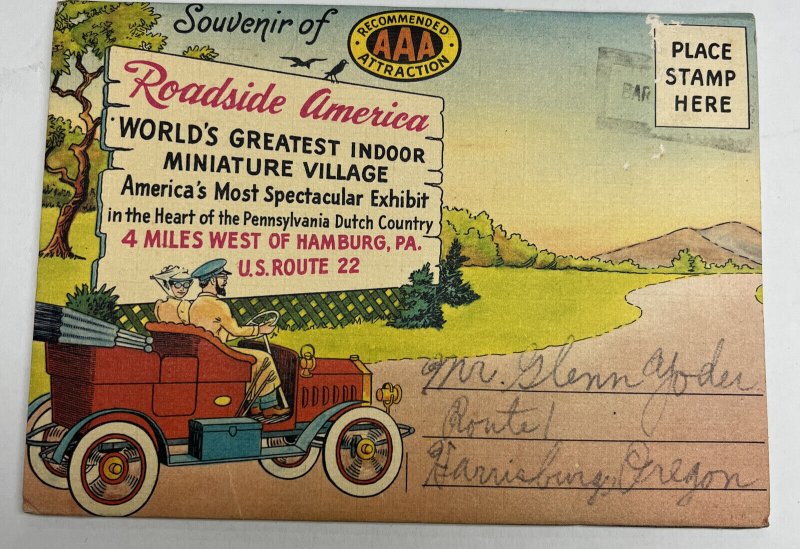 Souvenir of
RECOMMENDED
AAA
ATTRACTION
PLACE
STAMP
HERE
BAR
Roadside America
WORLD'S GREATEST INDOOR
MINIATURE VILLAGE
America's Most Spectacular Exhibit
in the Heart of the Pennsylvania Dutch Country
4 MILES WEST OF HAMBURG, PA.
U.S. ROUTE 22
Mr. Glenn Yoder
Route 1
Harrisburg, Oregon